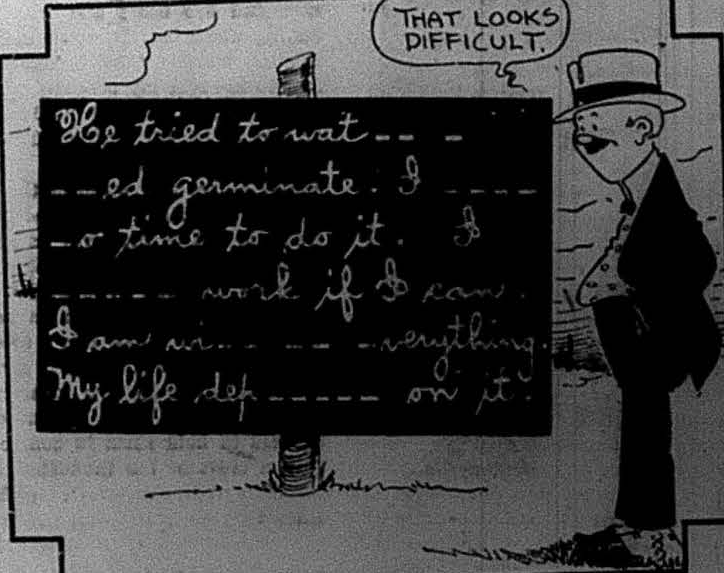 THAT LOOKS
DIFFICULT.
He tried to wat-- -
--ed germinate. I ----
-o time to do it. I
----- work if I can.
I am wi-- -- -verything.
My life dep----- on it.